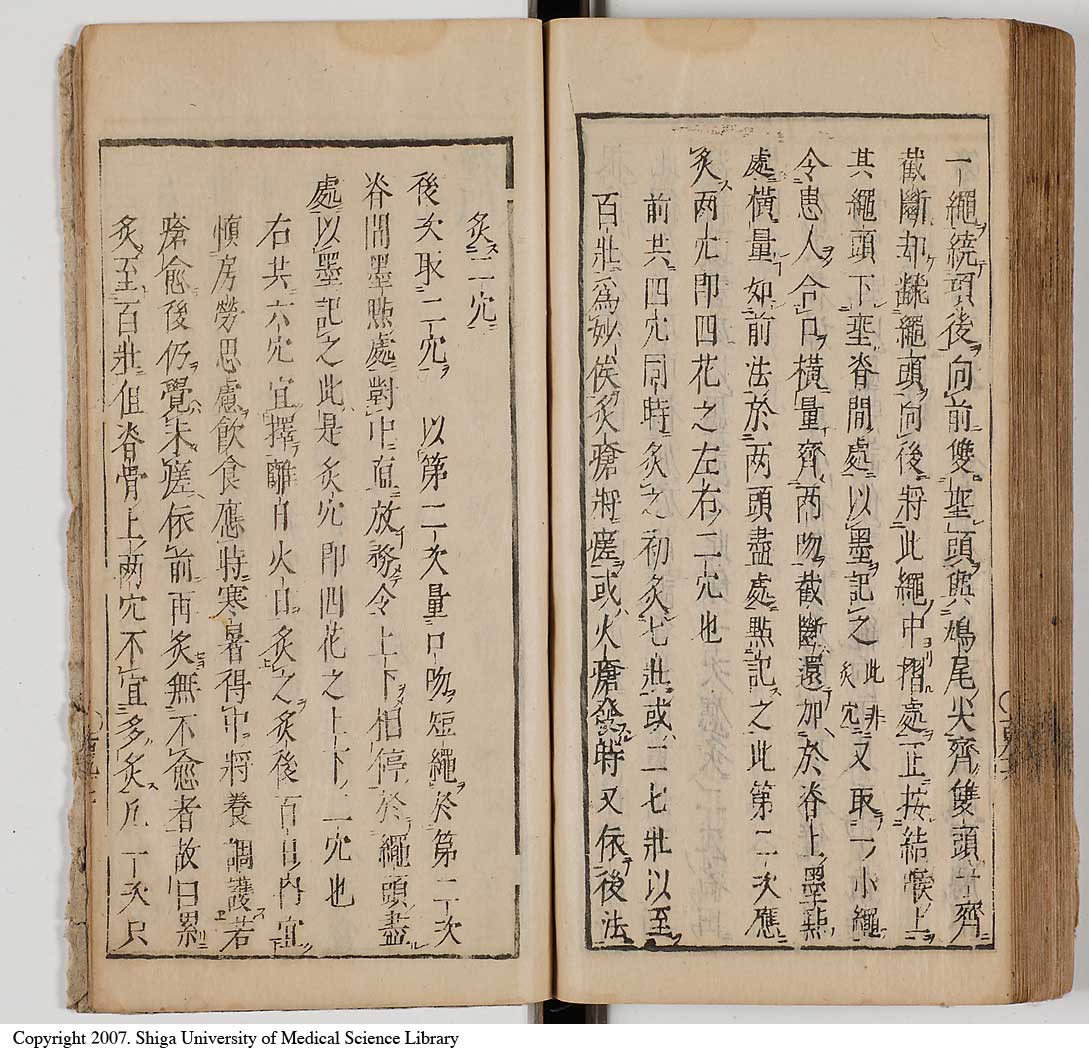 一繩繞頭後向前雙垂頭與鳩尾尖齊雙頭一齊
截斷却翻繩頭向後將此繩中摺處正按結喉上
其繩頭下垂脊間處以墨記之此非灸穴又取一小繩
令患人合口橫量齊兩吻截斷還加於脊上墨點
處橫量如前法於两頭盡處點記之此第二次應
灸两穴即四花之左右二穴也
前共四穴同時灸之初灸七壯或二七壯以至
百壯爲妙俟灸瘡將瘥或火瘡發時又依後法
灸二穴
後次取二穴 以第二次量口吻短繩於第二次
脊間墨點處對中直放務令上下相停於繩頭盡
處以墨記之此是灸穴即四花之上下二穴也
右共六穴宜擇離日火日灸之灸後百日內宜
慎房勞思慮飲食應時寒暑得中將養調護若
瘡愈後仍覺未瘥依前再灸無不愈者故曰累
灸至百壯但脊骨上两穴不宜多灸凢一次只
Copyright 2007. Shiga University of Medical Science Library